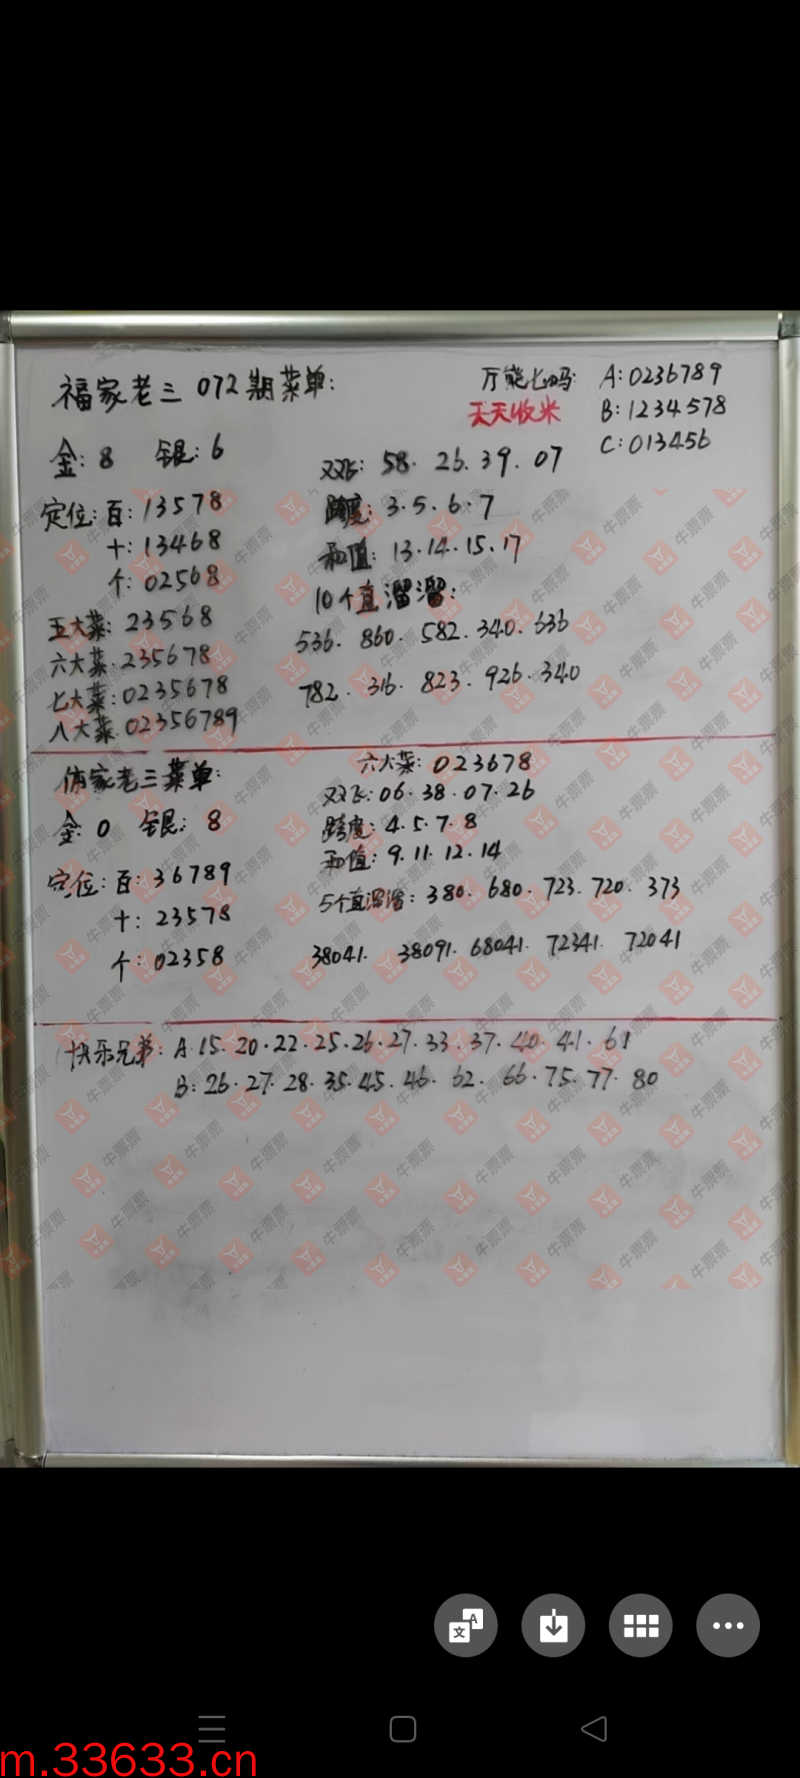 福家老三 072期菜单:
万能七码: A:0236789
天天收米 B:1234578
C:013456
金:8 银:6
双飞: 58. 26. 39. 07
定位:百:13578
跨度: 3.5.6.7
十:13468
和值: 13.14.15.17
个:02568
10个直溜溜:
五大菜:23568
536. 860. 582. 340. 636
六大菜.235678
七大菜:0235678
782. 316. 823. 926. 340
八大菜.02356789
体家老三菜单:
六大菜: 023678
双飞:06.38.07.26
金:0 银:8
跨度:4.5.7.8
和值:9.11.12.14
定位:百:36789
5个直溜溜:380. 680. 723. 720. 373
十:23578
个:02358
38041. 38091. 68041. 72341. 72041
快乐兄弟:A.15.20.22.25.26.27.33.37.40.41.61
B:26.27.28.35.45.46.62.66.75.77.80
牛票票
m.33633.cn